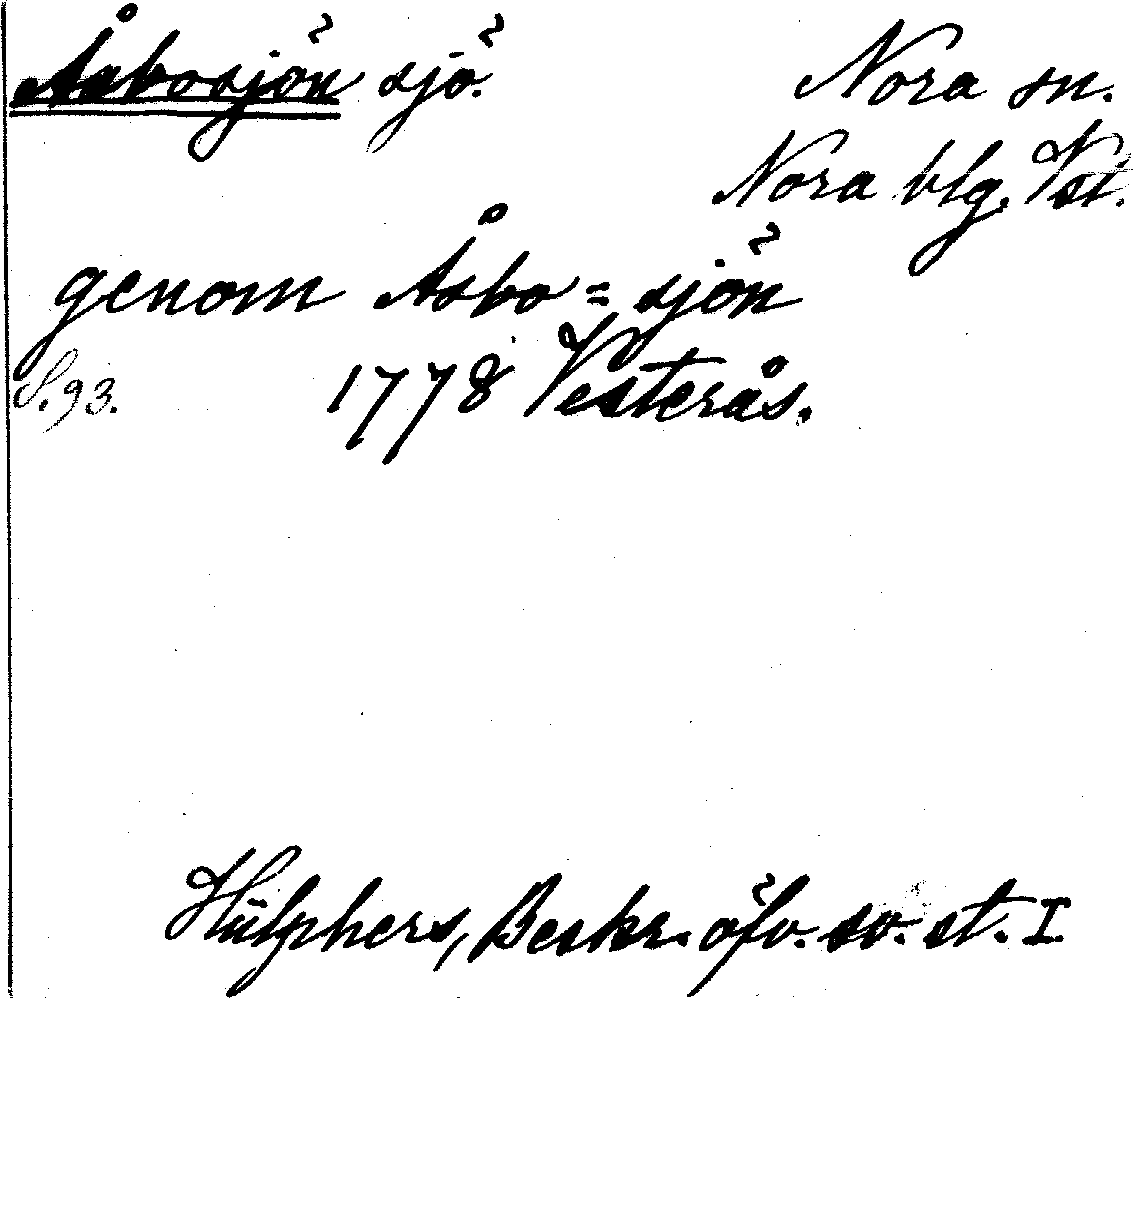 Åsbosjön sjö. Nora sn.
Nora blg. Vst.
genom Åsbo = sjön
S. 93. 1778 Vesterås.
Hülphers, Beskr. öfv. sv. st. I.